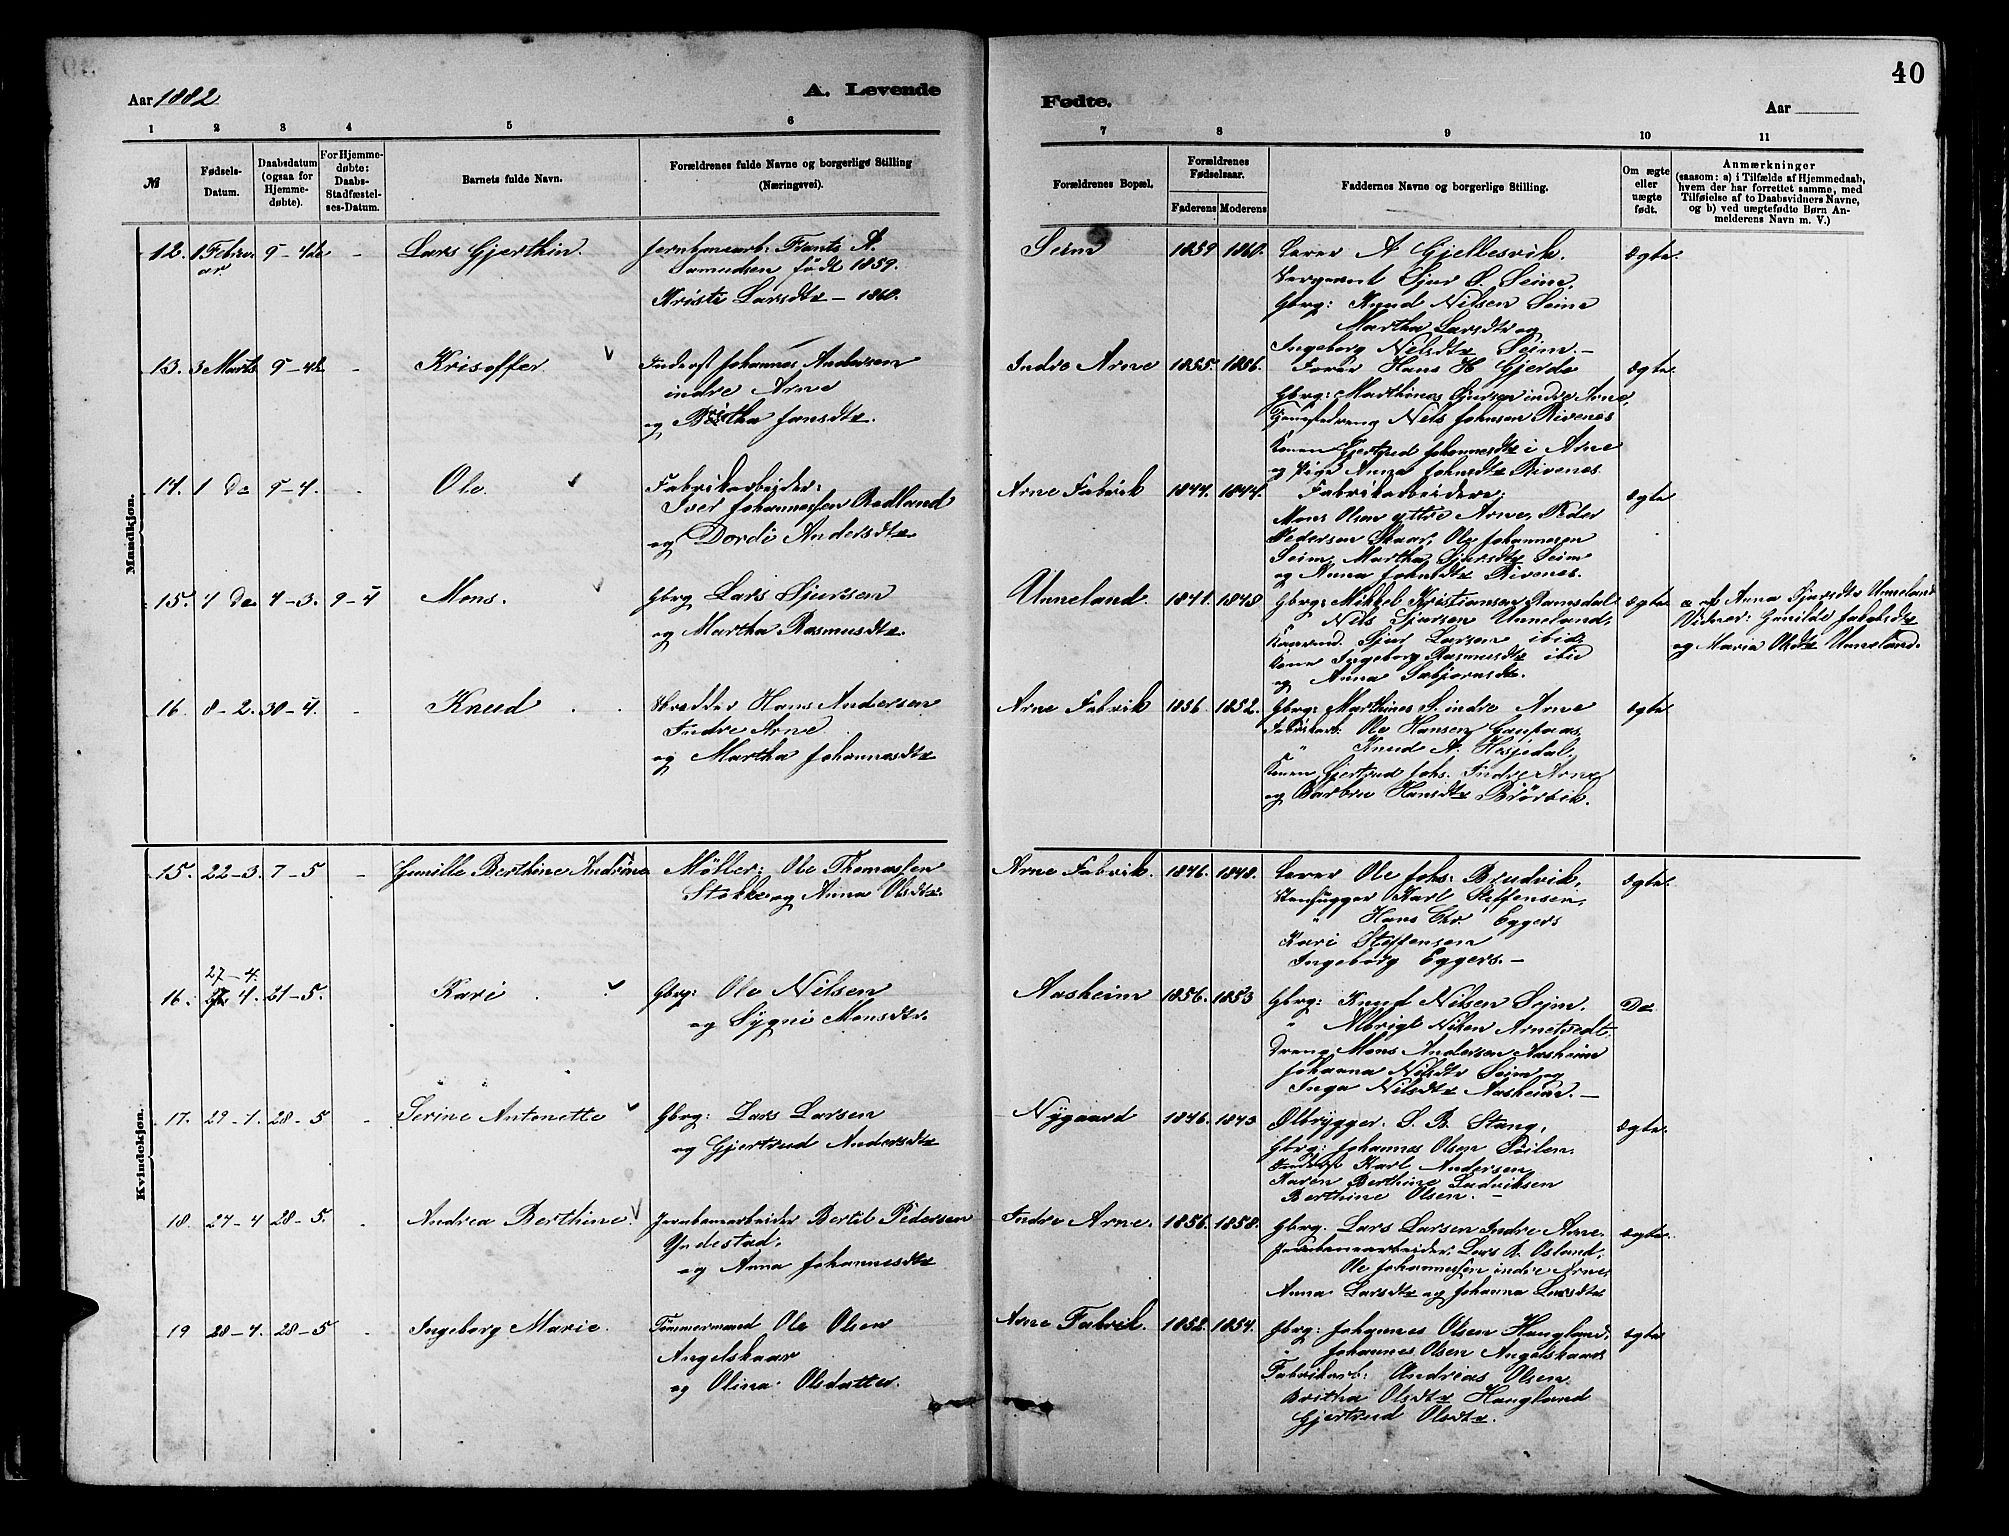 40
Aar 1882
A. Levende
Fødte.
Aar
1 2 3 4 5 6 7 8 9 10 11
№
Fødsels-
Datum.
Daabsdatum
(ogsaa for
Hjemme-
døbte).
For Hjemme-
døbte:
Daabs-
Stadfæstel-
ses-Datum.
Barnets fulde Navn.
Forældrenes fulde Navne og borgerlige Stilling
(Næringsvei).
Forældrenes Bopæl.
Forældrenes
Fødselsaar.
Faderens Moderens
Faddernes Navne og borgerlige Stilling.
Om ægte
eller
uægte
født.
Anmærkninger
(saasom: a) i Tilfælde af Hjemmedaab,
hvem der har forrettet samme, med
Tilføielse af to Daabsvidners Navne,
og b) ved uægtefødte Børn An-
melderens Navn m. V.)
Mandkjøn.
12. 1 Febru
ar
9-4
-
Lars Gjerthin.
Frants A.
Samuelsen født 1859.
Kristi Larsdtr - 1860.
Seim
1859 1860.
Lærer A Gjellesvik.
Sjur O. Seim,
Gbrg: Knud Nilsen Seim
Martha Larsdtr og
Ingeborg Nilsdtr Seim. -
Ægte.
13. 3 Marts 9-4
-
Krisoffer
Inderst Johannes Andersen
indre Arne
og Britha Jonsdtr.
Indre Arne
1855. 1856.
Hans H Gjerde
Gbrg: Marthinus indre Arne,
Nils Johnsen Rivenes
Konen Gjertrud Johannesdtr i Arne
og Pige Anna Johnsdtr Rivenes.
Ægte.
14. 1 Do 9-4.
-
Ole.
Fabrikarbeider:
Iver Johannessen Rødland
og Dordi Andersdtr.
Arne Fabrik
1844. 1844.
Fabrikarbeidere:
Mons Olsen yttre Arne, Peder
Pedersen Skaar, Ole Johannesen
Seim, Martha Sjursdtr Seim
og Anna Johnsdtr Rivenes.
Ægte
15. 1 Do 4-3. 9-4
Mons.
Gbrg Lars Sjursen
og Martha Rasmusdtr.
Unneland.
1841. 1848
Gbrg: Mikkel Kristiansen Ramsdal
Nils Sjursen Unneland,
Sjur Larsen ibid,
Kone Ingeborg Rasmusdtr ibid
og Anna
Ægte
a af Anna Sjursdtr Unneland
Vidner: Gunilde Jakobsdtr
og Maria Olsdtr Unneland.
16. 8-2. 30-4.
-
Knud
Skredder Hans Andersen
Indre Arne
og Martha Johannesdtr
Arne Fabrik
1856. 1852.
Gbrg: Marthines S. indre Arne
Fabrikarb: Ole Hansen
" Knud A. Hespedal,
Konen Gjertrud Johs. Indre Arne
og Barbra Hansdtr Brørvik.
Ægte.
Kvindekjøn.
15. 22-3. 7-5
-
Gunille Berthine Andrine
Møller: Ole Thomassen
Stokke og Anna Olsdtr.
Arne Fabrik.
1846. 1848.
Lærer Ole Johs: Brudvik,
Stenhugger Karl Steffensen,
" Hans Chr Eggers
Kari Steffensen
Ingeborg Eggers. -
Ægte.
27-4.
16. 4. 21-5.
-
Kari
Gbrg: Ole Nilsen
og Sygni Monsdtr.
Aasheim
1856. 1853
Gbrg: Knut Nilsen Seim.
" Albrigt Nilsen Arnetvedt,
Dreng Mons Andersen Aasheim
Johanna Nilsdtr Seim og
Inga Nilsdtr Aasheim. -
Do
17. 29-1. 28-5
-
Serine Antonette
Gbrg: Lars Larsen
og Gjertrud Andersdtr
Nygaard
1846. 1843
Ølbrygger. S. B. Stang,
Gbrg: Johannes Olsen Søilen.
Inderst Karl Andersen,
Karen Berthine Ludviksen
Berthine Olsen. -
Ægte.
18. 27-4 28-5.
-
Andrea Berthine.
Jernbanearbeider Bertil Pedersen
Yndestad,
og Anna Johannesdtr
Indre Arne.
1856. 1858.
Gbrg. Lars Larsen Indre Arne.
Jernbanearbeider. Lars A. Osland,
Ole Johannessen indre Arne,
Anna Larsdtr og Johanna Larsdtr
Ægte.
19 28-4. 28-5
-
Ingeborg Marie.
Tømmermand Ole Olsen
Angelskaar
og Olina Olsdatter.
Arne Fabrik.
1852. 1854.
Gbrg: Johannes Olsen Haugland,
" Johannes Olsen Angelskaar
Fabrikarb: Andrias Olsen
Britha Olsdtr Haugland
Gjertrud Olsdtr.
Ægte